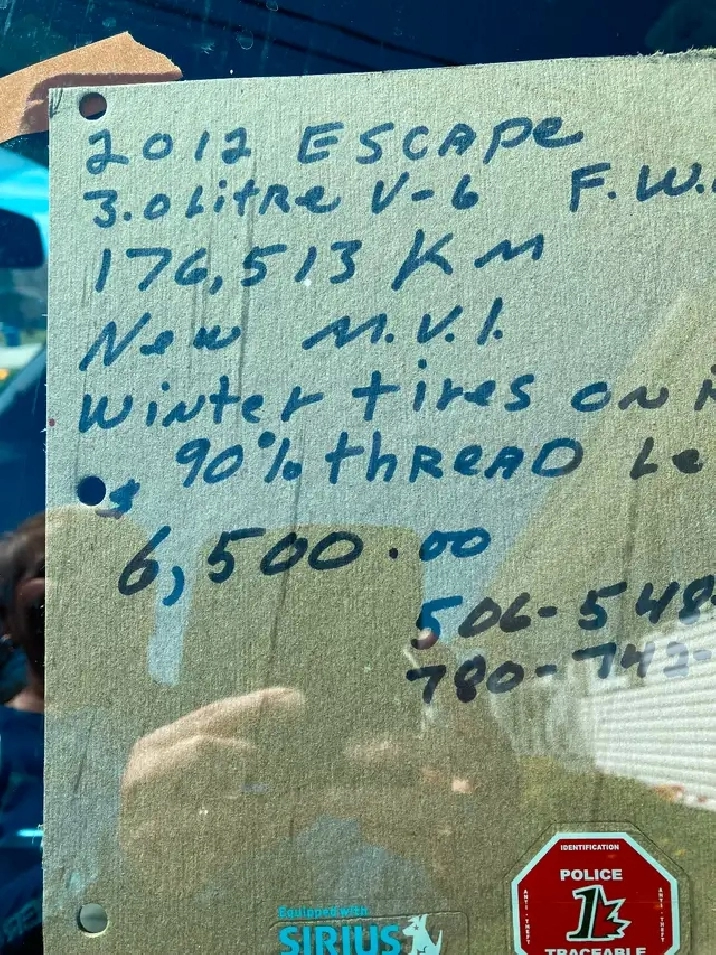 2012 ESCAPe
3.0 LitRe V-6 F.W.
176,513 KM
New M.V.I.
Winter tires on
90% thREAD Le
$
6,500.00
506-548-
780-742-
IDENTIFICATION
POLICE
ANTI-THEFT
1
ANTI-THEFT
TRACEABLE
Equipped with
SIRIUS